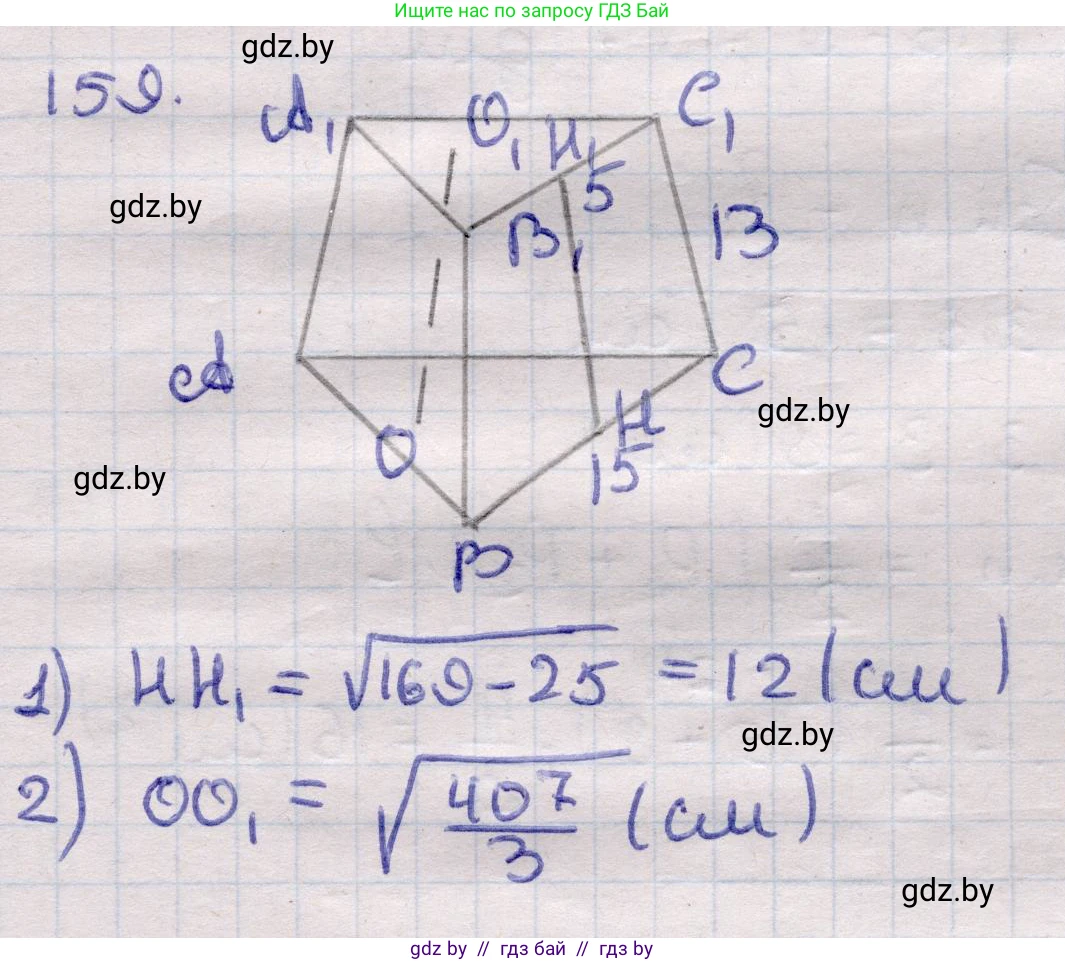 Ищите нас по запросу ГДЗ Бай
gdz.by
159.
A₁ O₁ H₁ C₁
5
gdz.by
B₁ 13
A C
gdz.by
O H
gdz.by
15
B
1) HH₁ = √169-25 = 12 (см)
gdz.by
2) OO₁ = √407/3 (см)
gdz.by
gdz.by // гдз бай // гдз by